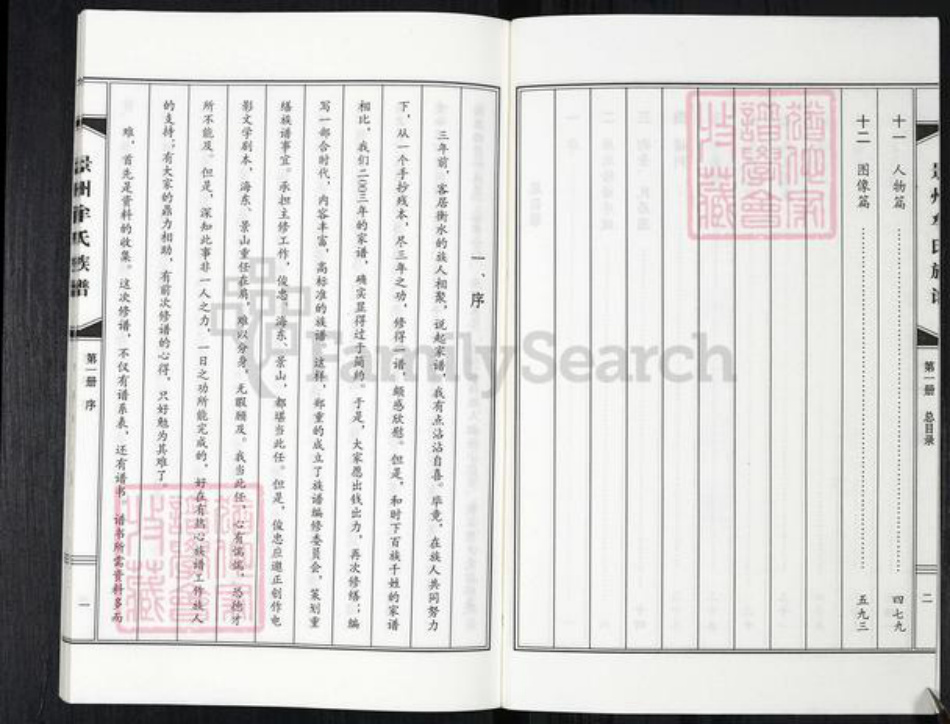 十一 人物篇 四七九
十二 图像篇 五九三
第一册 总目录
二
一、序
三年前，客居衡水的族人相聚，说起家谱，我有点沾沾自喜。毕竟，在族人共同努力
下，从一个手抄残本，尽三年之功，修得一谱，颇感欣慰。但是，和时下百族千姓的家谱
相比，我们二00三年的家谱，确实显得过于简约。于是，大家愿出钱出力，再次修缮；编
写一部合时代，内容丰富，高标准的族谱。这样，郑重的成立了族谱编修委员会，策划重
缮族谱事宜。承担主修工作，俊忠、海东、景山，都堪当此任。但是，俊忠应邀正创作电
影文学剧本，海东、景山重任在肩，难以分身，无暇顾及。我当此任，心有惴惴，恐德才
所不能及。但是，深知此事非一人之力，一日之功所能完成的，好在有热心族谱工作族人
的支持；有大家的鼎力相助，有前次修谱的心得，只好勉为其难了。
难，首先是资料的收集。这次修谱，不仅有谱系表，还有谱书，谱书所需资料多而
氏族谱
第一册 序
一
FamilySearch